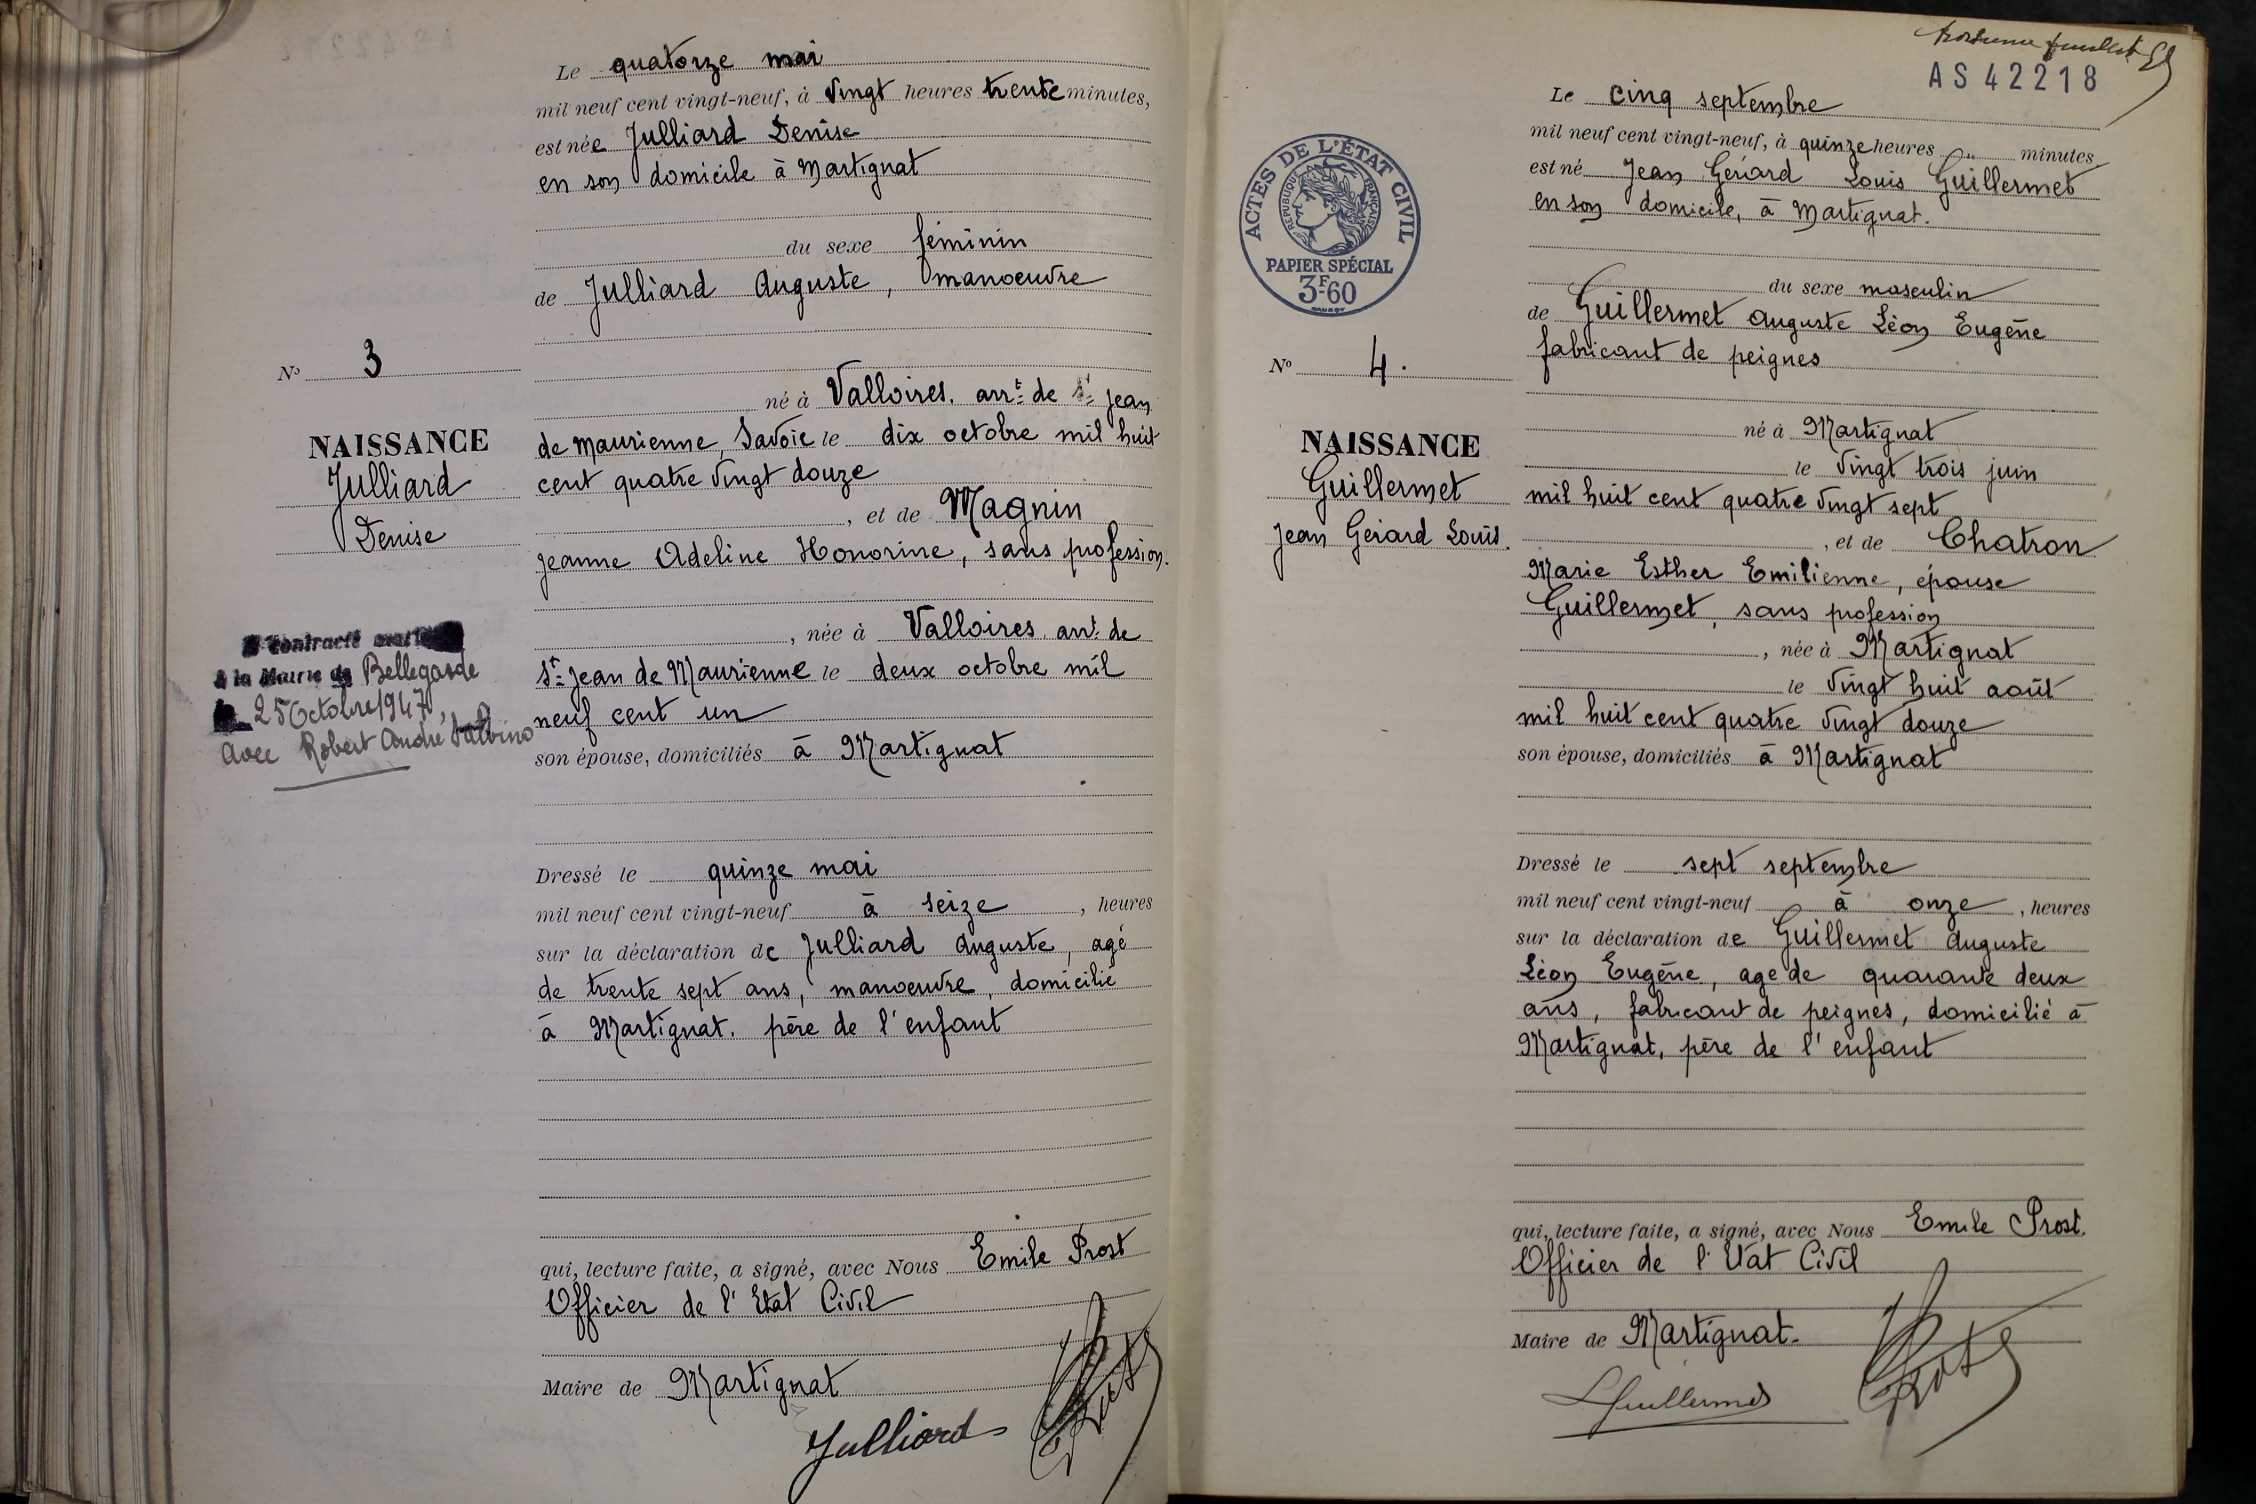 Le quatorze mai
mil neuf cent vingt-neuf, à vingt heures trente minutes,
est née Julliard Denise
en son domicile à Martignat
du sexe féminin
de Julliard Auguste, manoeuvre
né à Valloires, arr.t de St Jean
de Maurienne, Savoie le dix octobre mil huit
cent quatre vingt douze
, et de Magnin
Jeanne Adeline Honorine, sans profession.
, née à Valloires, arr.t de
St Jean de Maurienne le deux octobre mil
neuf cent un
son épouse, domiciliés à Martignat
Dressé le quinze mai
mil neuf cent vingt-neuf à seize, heures
sur la déclaration de Julliard Auguste, agé
de trente sept ans, manoeuvre, domicilié
à Martignat, père de l'enfant
qui, lecture faite, a signé, avec Nous Emile Prost
Officier de l'Etat Civil
Maire de Martignat
Julliard
Prost
N° 3
NAISSANCE
Julliard
Denise
contracté
à la Mairie de Bellegarde
25 Octobre 1947,
avec Robert André
feuillet
AS 42218
ACTES DE L'ÉTAT CIVIL
RÉPUBLIQUE FRANÇAISE
PAPIER SPÉCIAL
3F60
N° 4.
NAISSANCE
Guillermet
Jean Gérard Louis.
Le cinq septembre
mil neuf cent vingt-neuf, à quinze heures " minutes
est né Jean Gérard Louis Guillermet
en son domicile, à Martignat.
du sexe masculin
de Guillermet Auguste Léon Eugène
fabricant de peignes
né à Martignat
le vingt trois juin
mil huit cent quatre vingt sept
, et de Chatron
Marie Esther Emilienne, épouse
Guillermet, sans profession
, née à Martignat
le vingt huit août
mil huit cent quatre vingt douze
son épouse, domiciliés à Martignat
Dressé le sept septembre
mil neuf cent vingt-neuf à onze, heures
sur la déclaration de Guillermet Auguste
Léon Eugène, age de quarante deux
ans, fabricant de peignes, domicilié à
Martignat, père de l'enfant
qui, lecture faite, a signé, avec Nous Emile Prost.
Officier de l'Etat Civil
Maire de Martignat.
LGuillermet
Prost